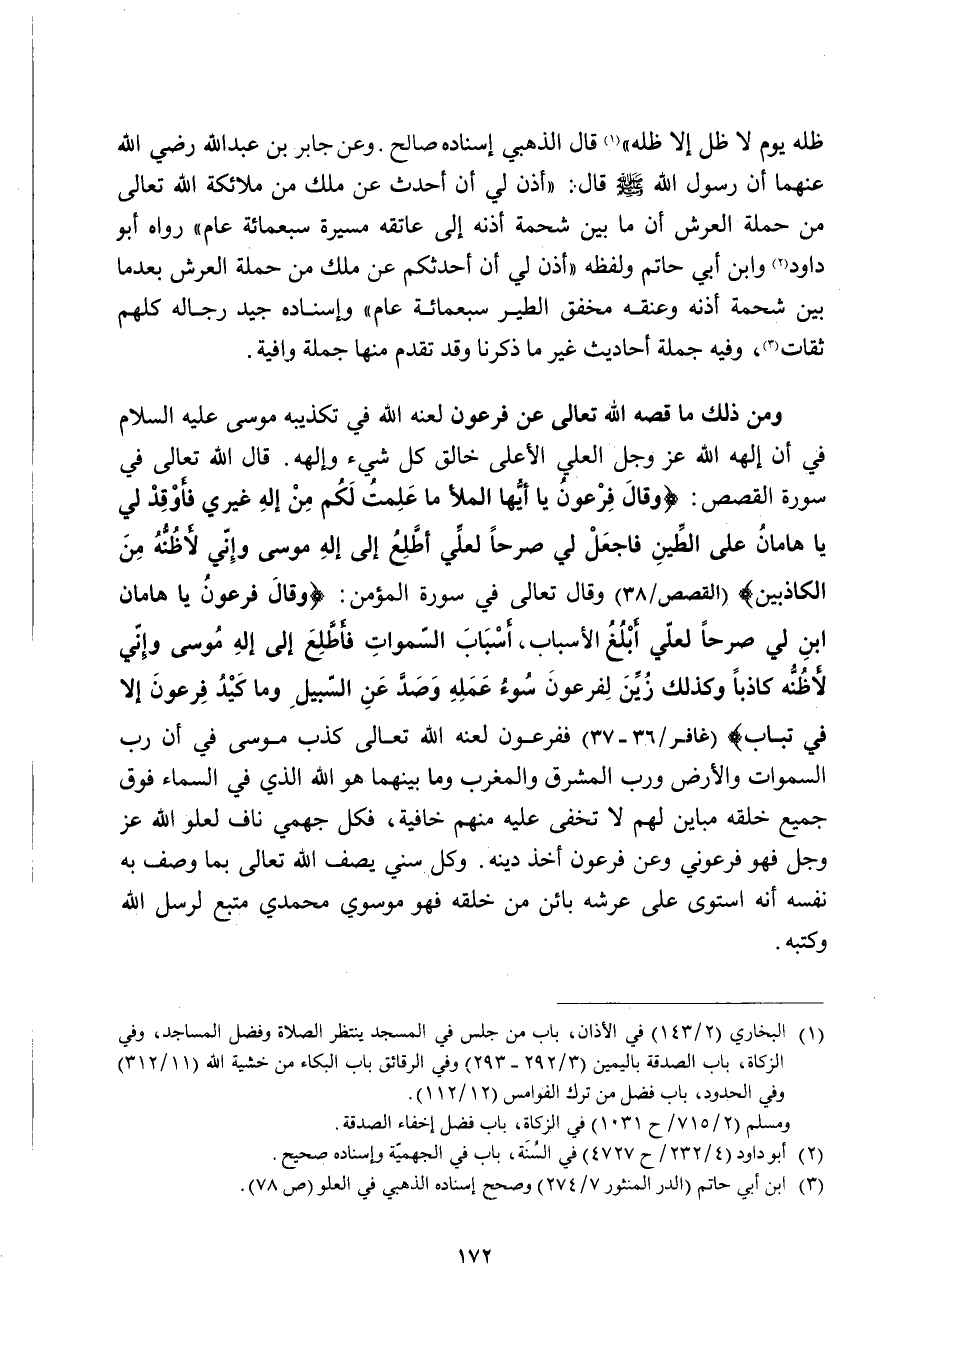 ظله يوم لا ظل إلا ظله»(١) قال الذهبي إسناده صالح . وعن جابر بن عبدالله رضي الله
عنهما أن رسول الله ﷺ قال: «أذن لي أن أحدث عن ملك من ملائكة الله تعالى
من حملة العرش أن ما بين شحمة أذنه إلى عاتقه مسيرة سبعمائة عام» رواه أبو
داود(٢) وابن أبي حاتم ولفظه «أذن لي أن أحدثكم عن ملك من حملة العرش بعدما
بين شحمة أذنه وعنقه مخفق الطير سبعمائة عام» وإسناده جيد رجاله كلهم
ثقات(٣)، وفيه جملة أحاديث غير ما ذكرنا وقد تقدم منها جملة وافية .
ومن ذلك ما قصه الله تعالى عن فرعون لعنه الله في تكذيبه موسى عليه السلام
في أن إلهه الله عز وجل العلي الأعلى خالق كل شيء وإلهه. قال الله تعالى في
سورة القصص: ﴿وقالَ فِرْعونُ يا أيُّها الملأ ما عَلِمتُ لَكُم مِنْ إلهِ غيري فأَوْقِدْ لي
يا هامانُ على الطِّينِ فاجعَلْ لي صرحاً لعلِّي أطَّلِعُ إلى إلهِ موسى وإنّي لَأَظُنُّهُ مِنَ
الكاذبين﴾ (القصص/٣٨) وقال تعالى في سورة المؤمن: ﴿وقالَ فرعونُ يا هامان
ابنِ لي صرحاً لعلّي أَبْلُغُ الأسباب، أَسْبَابَ السّمواتِ فأَطَّلِعَ إلى إلهِ مُوسى وإنّي
لَأَظُنُّه كاذباً وكذلك زُيِّنَ لِفرعونَ سُوءُ عَمَلِهِ وَصَدَّ عَنِ السّبيلِ وما كَيْدُ فِرعونَ إلا
في تباب﴾ (غافر/٣٦ـ٣٧) ففرعون لعنه الله تعالى كذب موسى في أن رب
السموات والأرض ورب المشرق والمغرب وما بينهما هو الله الذي في السماء فوق
جميع خلقه مباين لهم لا تخفى عليه منهم خافية، فكل جهمي ناف لعلو الله عز
وجل فهو فرعوني وعن فرعون أخذ دينه. وكل سني يصف الله تعالى بما وصف به
نفسه أنه استوى على عرشه بائن من خلقه فهو موسوي محمدي متبع لرسل الله
وكتبه .
(١) البخاري (١٤٣/٢) في الأذان، باب من جلس في المسجد ينتظر الصلاة وفضل المساجد، وفي
الزكاة، باب الصدقة باليمين (٢٩٢/٣ ـ ٢٩٣) وفي الرقائق باب البكاء من خشية الله (٣١٢/١١)
وفي الحدود، باب فضل من ترك الفوامس (١١٢/١٢).
ومسلم (٧١٥/٢/ ح ١٠٣١) في الزكاة، باب فضل إخفاء الصدقة.
(٢) أبو داود (٢٣٢/٤/ ح ٤٧٢٧) في السُنَة، باب في الجهميّة وإسناده صحيح.
(٣) ابن أبي حاتم (الدر المنثور ٢٧٤/٧) وصحح إسناده الذهبي في العلو (ص ٧٨).
١٧٢